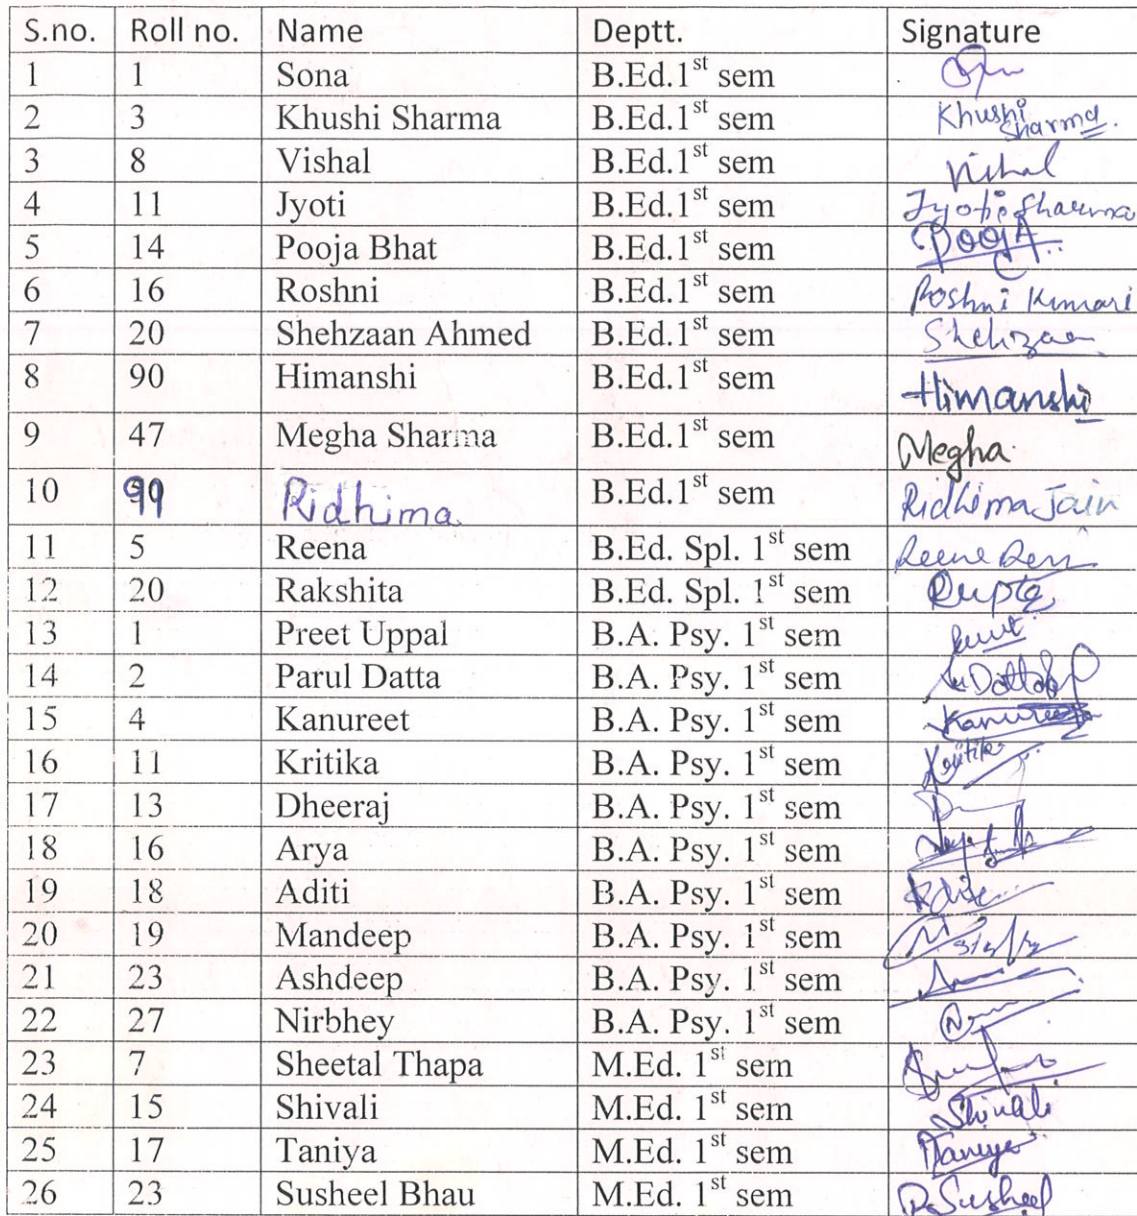 S.no. Roll no. Name Deptt. Signature
1 1 Sona B.Ed.1st sem
2 3 Khushi Sharma B.Ed.1st sem Khushi Sharma
3 8 Vishal B.Ed.1st sem Vishal
4 11 Jyoti B.Ed.1st sem Jyoti Sharma
5 14 Pooja Bhat B.Ed.1st sem POOJA
6 16 Roshni B.Ed.1st sem Roshni Kumari
7 20 Shehzaan Ahmed B.Ed.1st sem Shehzaan
8 90 Himanshi B.Ed.1st sem Himanshi
9 47 Megha Sharma B.Ed.1st sem Megha
10 Ridhima B.Ed.1st sem Ridhima Jain
11 5 Reena B.Ed. Spl. 1st sem
12 20 Rakshita B.Ed. Spl. 1st sem Rupta
13 1 Preet Uppal B.A. Psy. 1st sem
14 2 Parul Datta B.A. Psy. 1st sem
15 4 Kanureet B.A. Psy. 1st sem Kanureet
16 11 Kritika B.A. Psy. 1st sem Kritika
17 13 Dheeraj B.A. Psy. 1st sem
18 16 Arya B.A. Psy. 1st sem
19 18 Aditi B.A. Psy. 1st sem
20 19 Mandeep B.A. Psy. 1st sem
21 23 Ashdeep B.A. Psy. 1st sem
22 27 Nirbhey B.A. Psy. 1st sem
23 7 Sheetal Thapa M.Ed. 1st sem
24 15 Shivali M.Ed. 1st sem Shivali
25 17 Taniya M.Ed. 1st sem Taniya
26 23 Susheel Bhau M.Ed. 1st sem Susheel